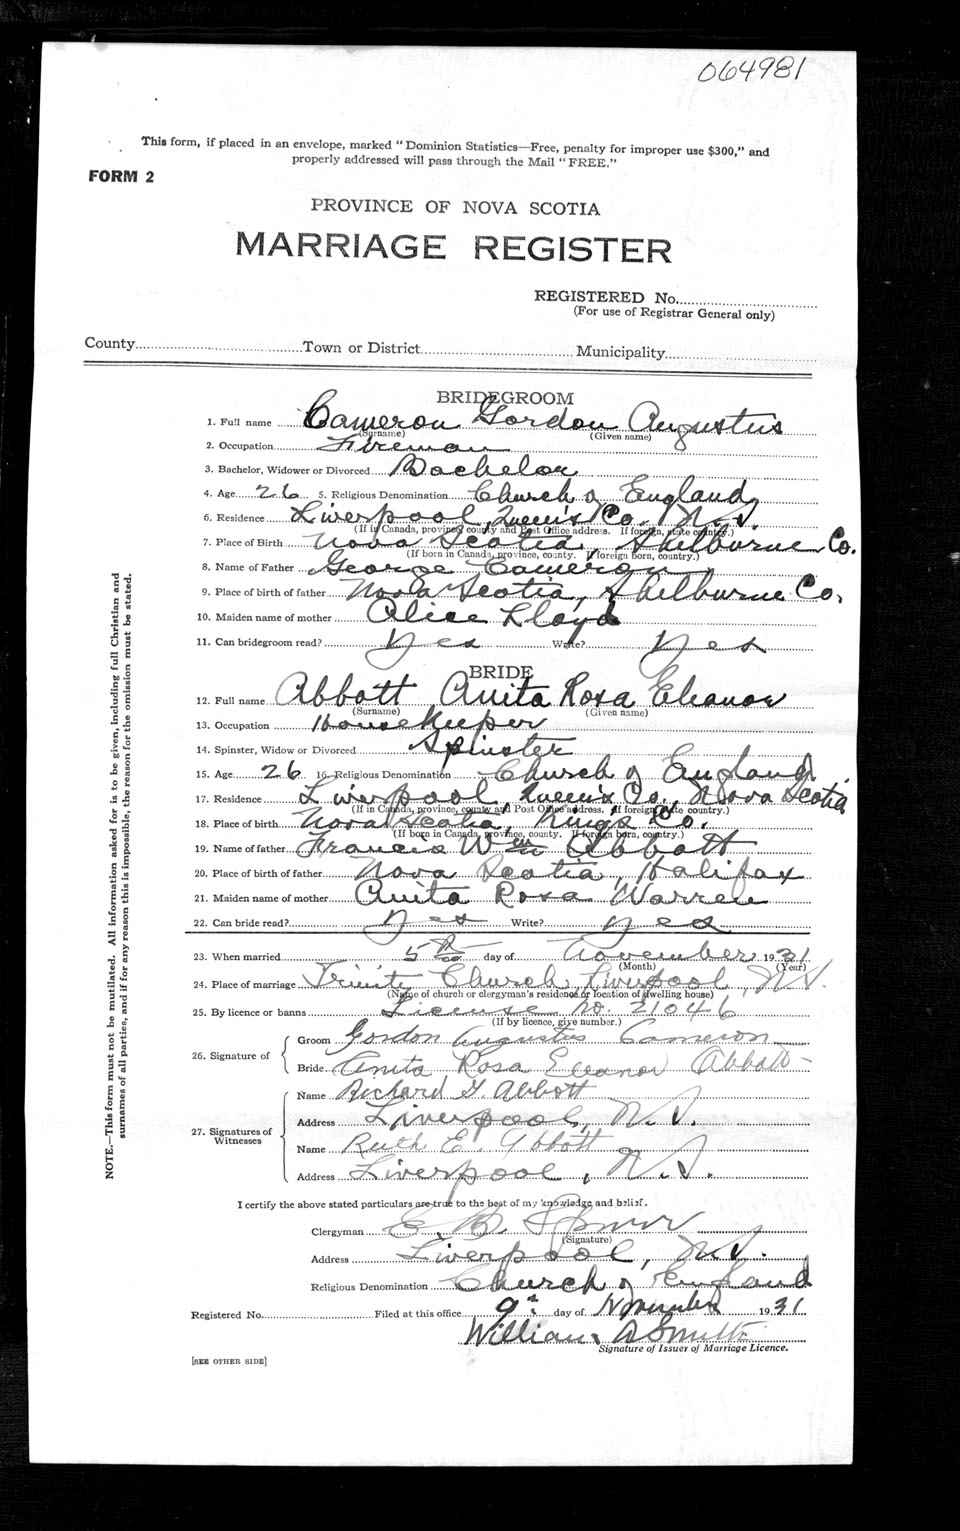 064981
This form, if placed in an envelope, marked "Dominion Statistics—Free, penalty for improper use $300," and
properly addressed will pass through the Mail "FREE."
FORM 2
PROVINCE OF NOVA SCOTIA
MARRIAGE REGISTER
REGISTERED No.
(For use of Registrar General only)
County Town or District Municipality
BRIDEGROOM
1. Full name Cameron Gordon Augustus
(Surname) (Given name)
2. Occupation Fireman
3. Bachelor, Widower or Divorced Bachelor
4. Age 26 5. Religious Denomination Church of England
6. Residence Liverpool, Queen's Co. N.S.
(If in Canada, province, county and Post Office address. If foreign, state country.)
7. Place of Birth Nova Scotia, Shelburne Co.
(If born in Canada, province, county. If foreign born, country.)
8. Name of Father George Cameron
9. Place of birth of father Nova Scotia, Shelburne Co.
10. Maiden name of mother Alice Lloyd
11. Can bridegroom read? Yes Write? Yes
BRIDE
12. Full name Abbott Anita Rosa Eleanor
(Surname) (Given name)
13. Occupation Housekeeper
14. Spinster, Widow or Divorced Spinster
15. Age 26 16. Religious Denomination Church of England
17. Residence Liverpool, Queen's Co., Nova Scotia
(If in Canada, province, county and Post Office address. If foreign state country.)
18. Place of birth Nova Scotia, King's Co.
(If born in Canada, province, county. If foreign born, country.)
19. Name of father Francis Wm Abbott
20. Place of birth of father Nova Scotia, Halifax
21. Maiden name of mother Anita Rosa Warren
22. Can bride read? Yes Write? Yes
23. When married 5th day of November 1931
(Month) (Year)
24. Place of marriage Trinity Church, Liverpool, N.S.
(Name of church or clergyman's residence or location of dwelling house)
25. By licence or banns License No. 21046
(If by licence, give number.)
26. Signature of
Groom Gordon Augustus Cameron
Bride Anita Rosa Eleanor Abbott
27. Signatures of Witnesses
Name Richard G. Abbott
Address Liverpool, N.S.
Name Ruth E. Abbott
Address Liverpool, N.S.
I certify the above stated particulars are true to the best of my knowledge and belief.
Clergyman E. B. Spurr
(Signature)
Address Liverpool, N.S.
Religious Denomination Church of England
Registered No. Filed at this office 9th day of November 1931
William A Smith
Signature of Issuer of Marriage Licence.
[SEE OTHER SIDE]
NOTE.—This form must not be mutilated. All information asked for is to be given, including full Christian and
surnames of all parties, and if for any reason this is impossible, the reason for the omission must be stated.